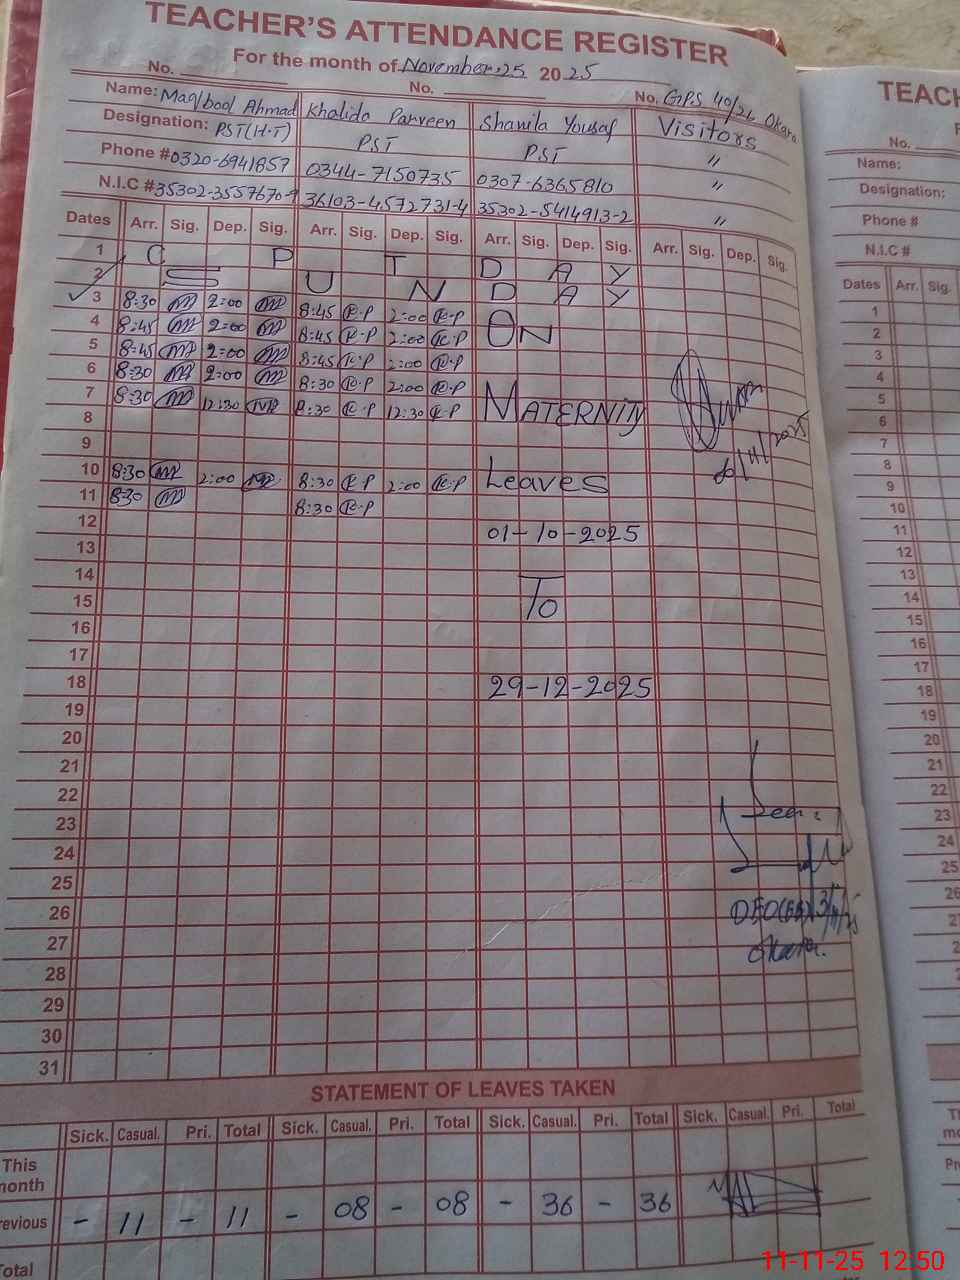 TEACHER'S ATTENDANCE REGISTER
For the month of November.25 2025
No. No. No. GPS 40/2L Okara
Name: Maqbool Ahmad Khalida Parveen Shamila Yousaf Visitors
Designation: PST(H.T) PST PST "
Phone #0320-6941857 0344-7150735 0307-6365810 "
N.I.C #35302-3557670-9 36103-4572731-4 35302-5414913-2 "
Dates Arr. Sig. Dep. Sig. Arr. Sig. Dep. Sig. Arr. Sig. Dep. Sig. Arr. Sig. Dep. Sig.
1 C P T D A Y
2 S U N D A Y
3 8:30 2:00 8:45 K.P 2:00 K.P
4 8:45 2:00 8:45 K.P 2:00 K.P ON
5 8:45 2:00 8:45 K.P 2:00 K.P
6 8:30 2:00 8:30 K.P 2:00 K.P
7 8:30 12:30 8:30 K.P 12:30 K.P MATERNITY
8
9
10 8:30 2:00 8:30 K.P 2:00 K.P Leaves
11 8:30 8:30 K.P
12 01-10-2025
13
14
15 To
16
17
18 29-12-2025
19
20
21
22
23 Seen
24
25
26 DEO(EE)
27 Okara.
28
29
30
31
STATEMENT OF LEAVES TAKEN
Sick. Casual. Pri. Total Sick. Casual. Pri. Total Sick. Casual. Pri. Total Sick. Casual. Pri. Total
This
month
revious - 11 - 11 - 08 - 08 - 36 - 36
otal
TEACH
No.
Name:
Designation:
Phone #
N.I.C #
Dates Arr. Sig.
1
2
3
4
5
6
7
8
9
10
11
12
13
14
15
16
17
18
19
20
21
22
23
24
25
26
11-11-25 12:50